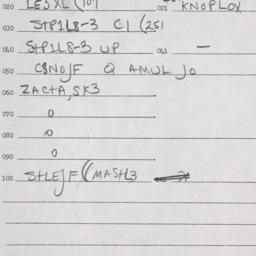 020 LESXL (107 021 KNOPLOX
030 STP1L8-3 C1 (251
040 STP1L8-3 UP 041 —
050 CSNOJF Q AMUL JO
060 ZACTA, SK3
070 0
080 0
090 0
100 STLEJF ((MASTL3